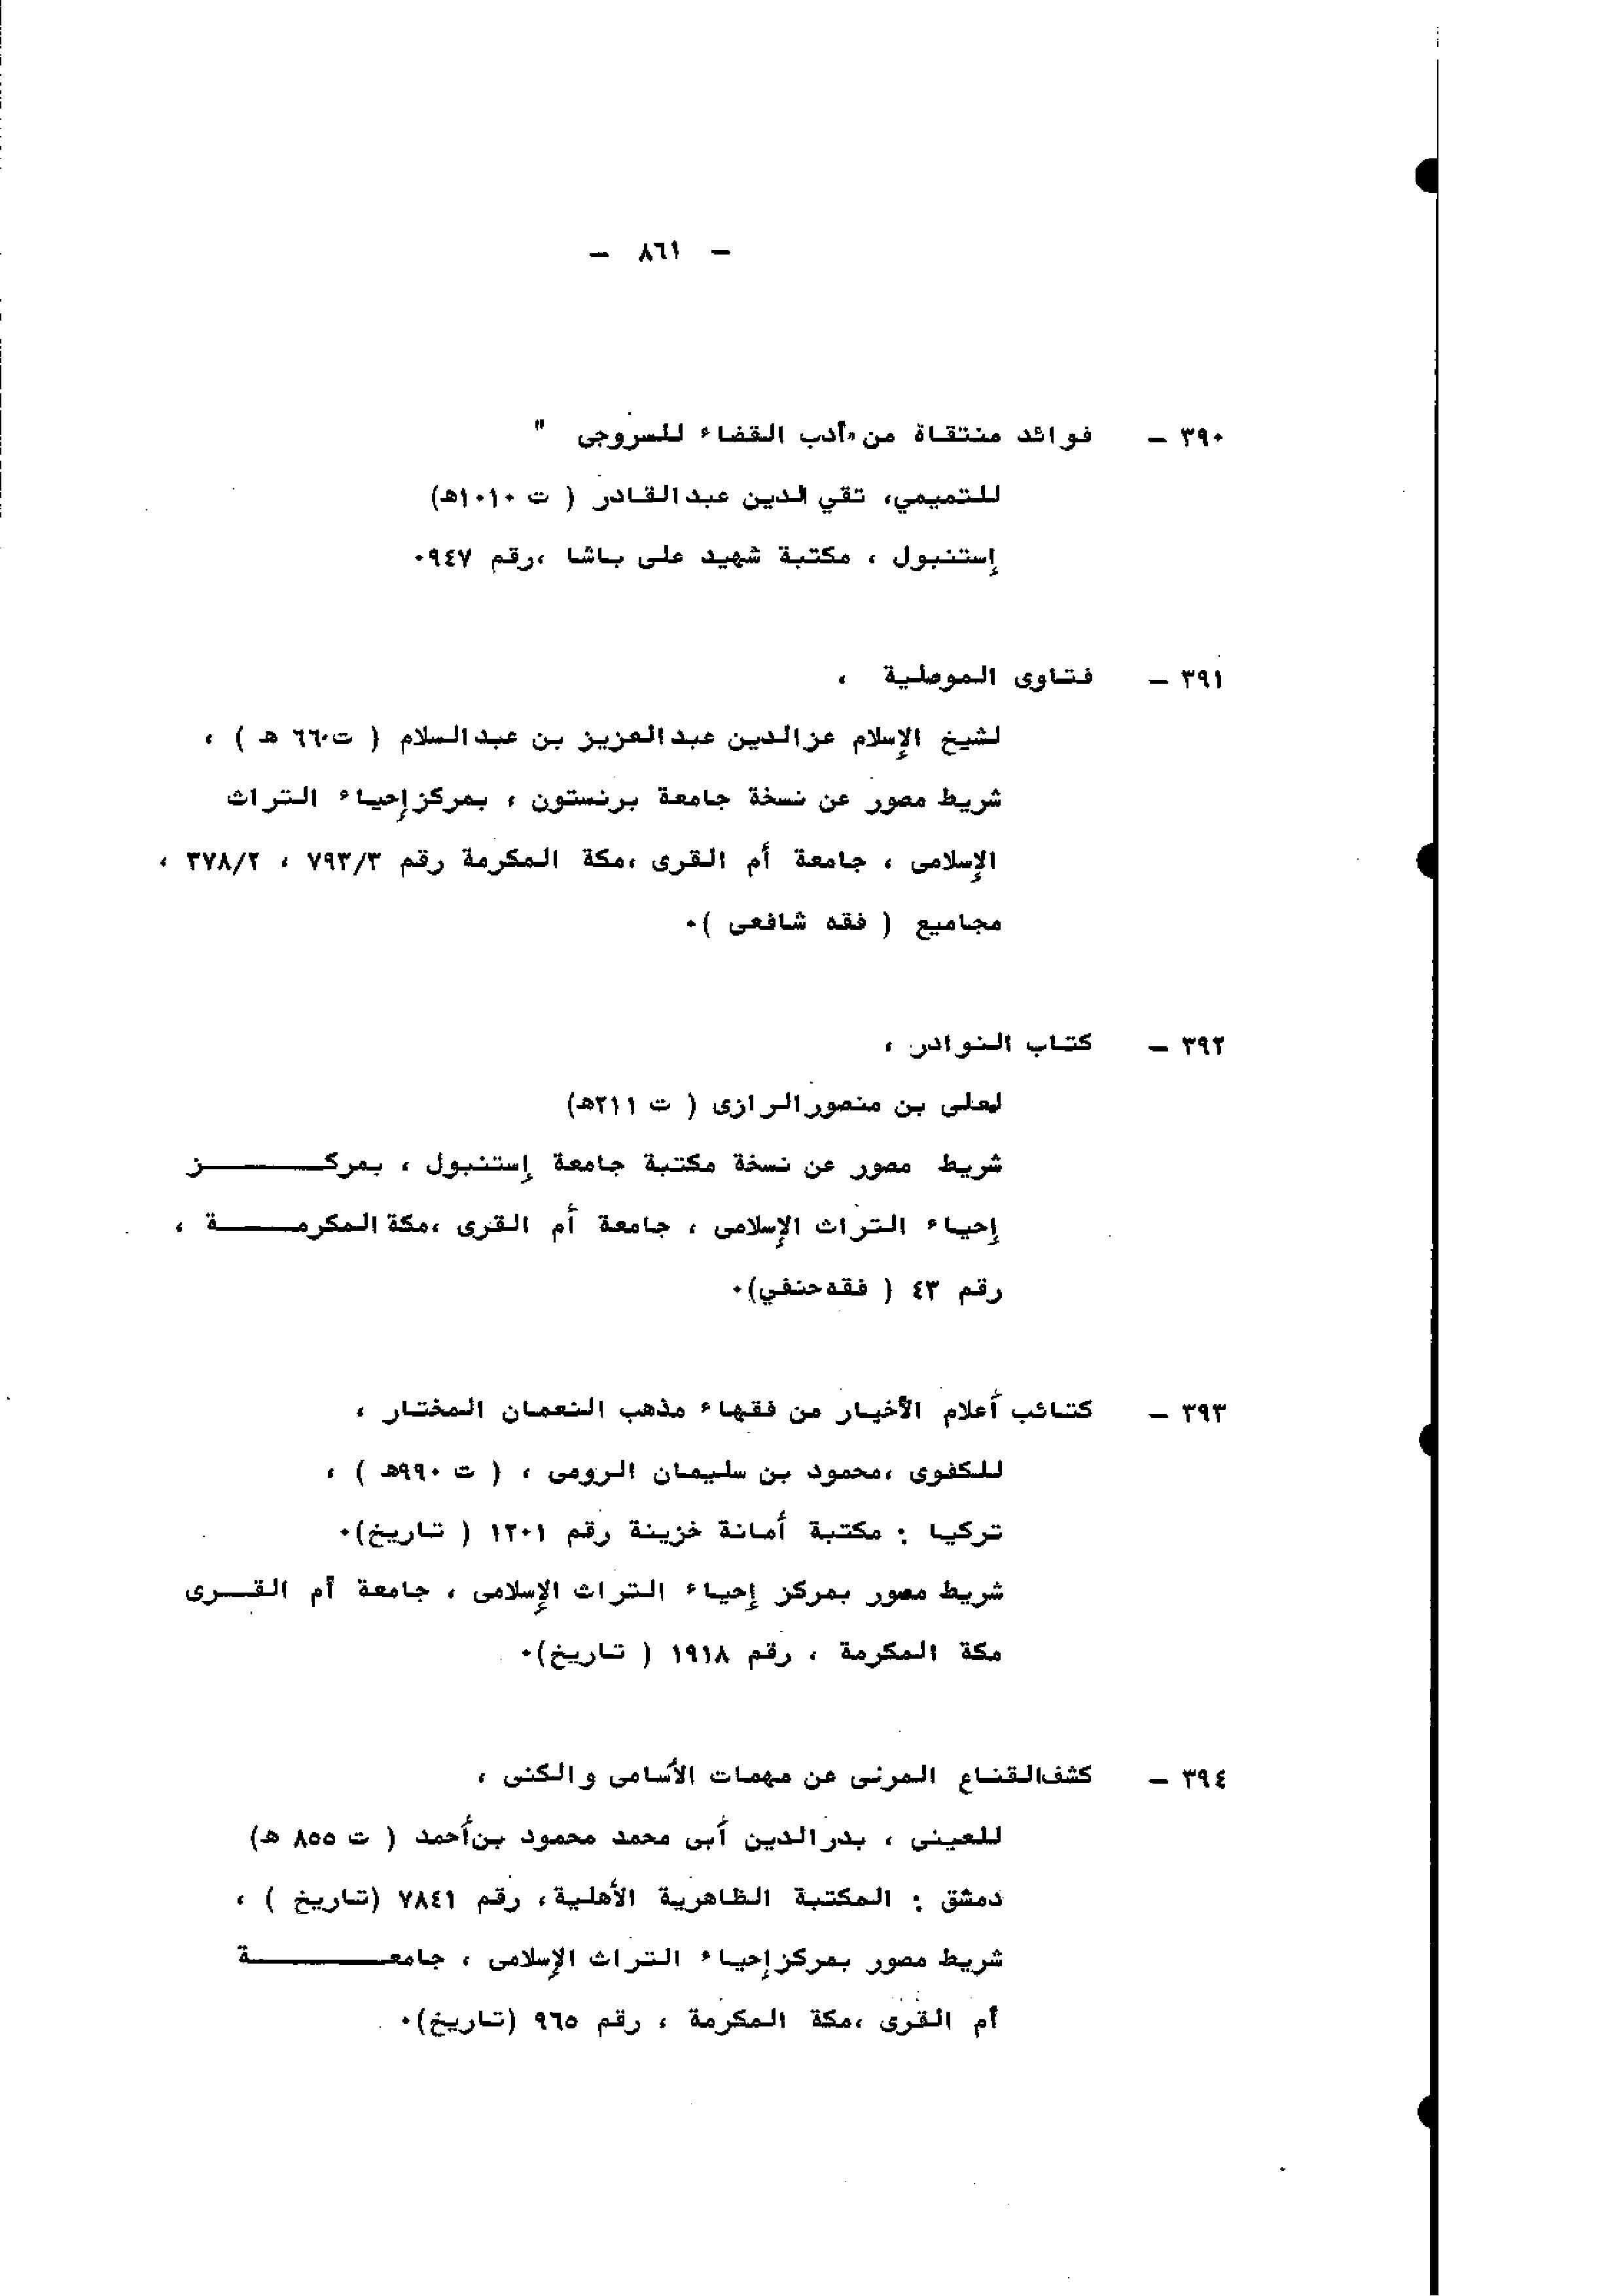 - ٨٦١ -
٣٩٠ - فوائد منتقاة من "أدب القضاء للسروجى "
للتميمي، تقي الدين عبدالقادر ( ت ١٠١٠هـ)
إستنبول ، مكتبة شهيد على باشا ،رقم ٩٤٧٠
٣٩١ - فتاوى الموصلية ،
لشيخ الإسلام عزالدين عبدالعزيز بن عبدالسلام ( ت٦٦٠ هـ ) ،
شريط مصور عن نسخة جامعة برنستون ، بمركز إحياء التراث
الإسلامى ، جامعة أم القرى ،مكة المكرمة رقم ٧٩٣/٣ ، ٣٧٨/٢ ،
مجاميع ( فقه شافعى )٠
٣٩٢ - كتاب النوادر ،
لمعلى بن منصور الرازى ( ت ٢١١هـ)
شريط مصور عن نسخة مكتبة جامعة إستنبول ، بمركـــــز
إحياء التراث الإسلامى ، جامعة أم القرى ،مكة المكرمـــــة ،
رقم ٤٣ ( فقه حنفي)٠
٣٩٣ - كتائب أعلام الأخيار من فقهاء مذهب النعمان المختار ،
للكفوى ،محمود بن سليمان الرومى ، ( ت ٩٩٠هـ ) ،
تركيا : مكتبة أمانة خزينة رقم ١٢٠١ ( تاريخ)٠
شريط مصور بمركز إحياء التراث الإسلامى ، جامعة أم القـــرى
مكة المكرمة ، رقم ١٩١٨ ( تاريخ)٠
٣٩٤ - كشف القناع المرنى عن مهمات الأسامى والكنى ،
للعينى ، بدر الدين أبى محمد محمود بن أحمد ( ت ٨٥٥ هـ)
دمشق : المكتبة الظاهرية الأهلية ، رقم ٧٨٤١ (تاريخ ) ،
شريط مصور بمركز إحياء التراث الإسلامى ، جامعـــــــة
أم القرى ،مكة المكرمة ، رقم ٩٦٥ (تاريخ)٠